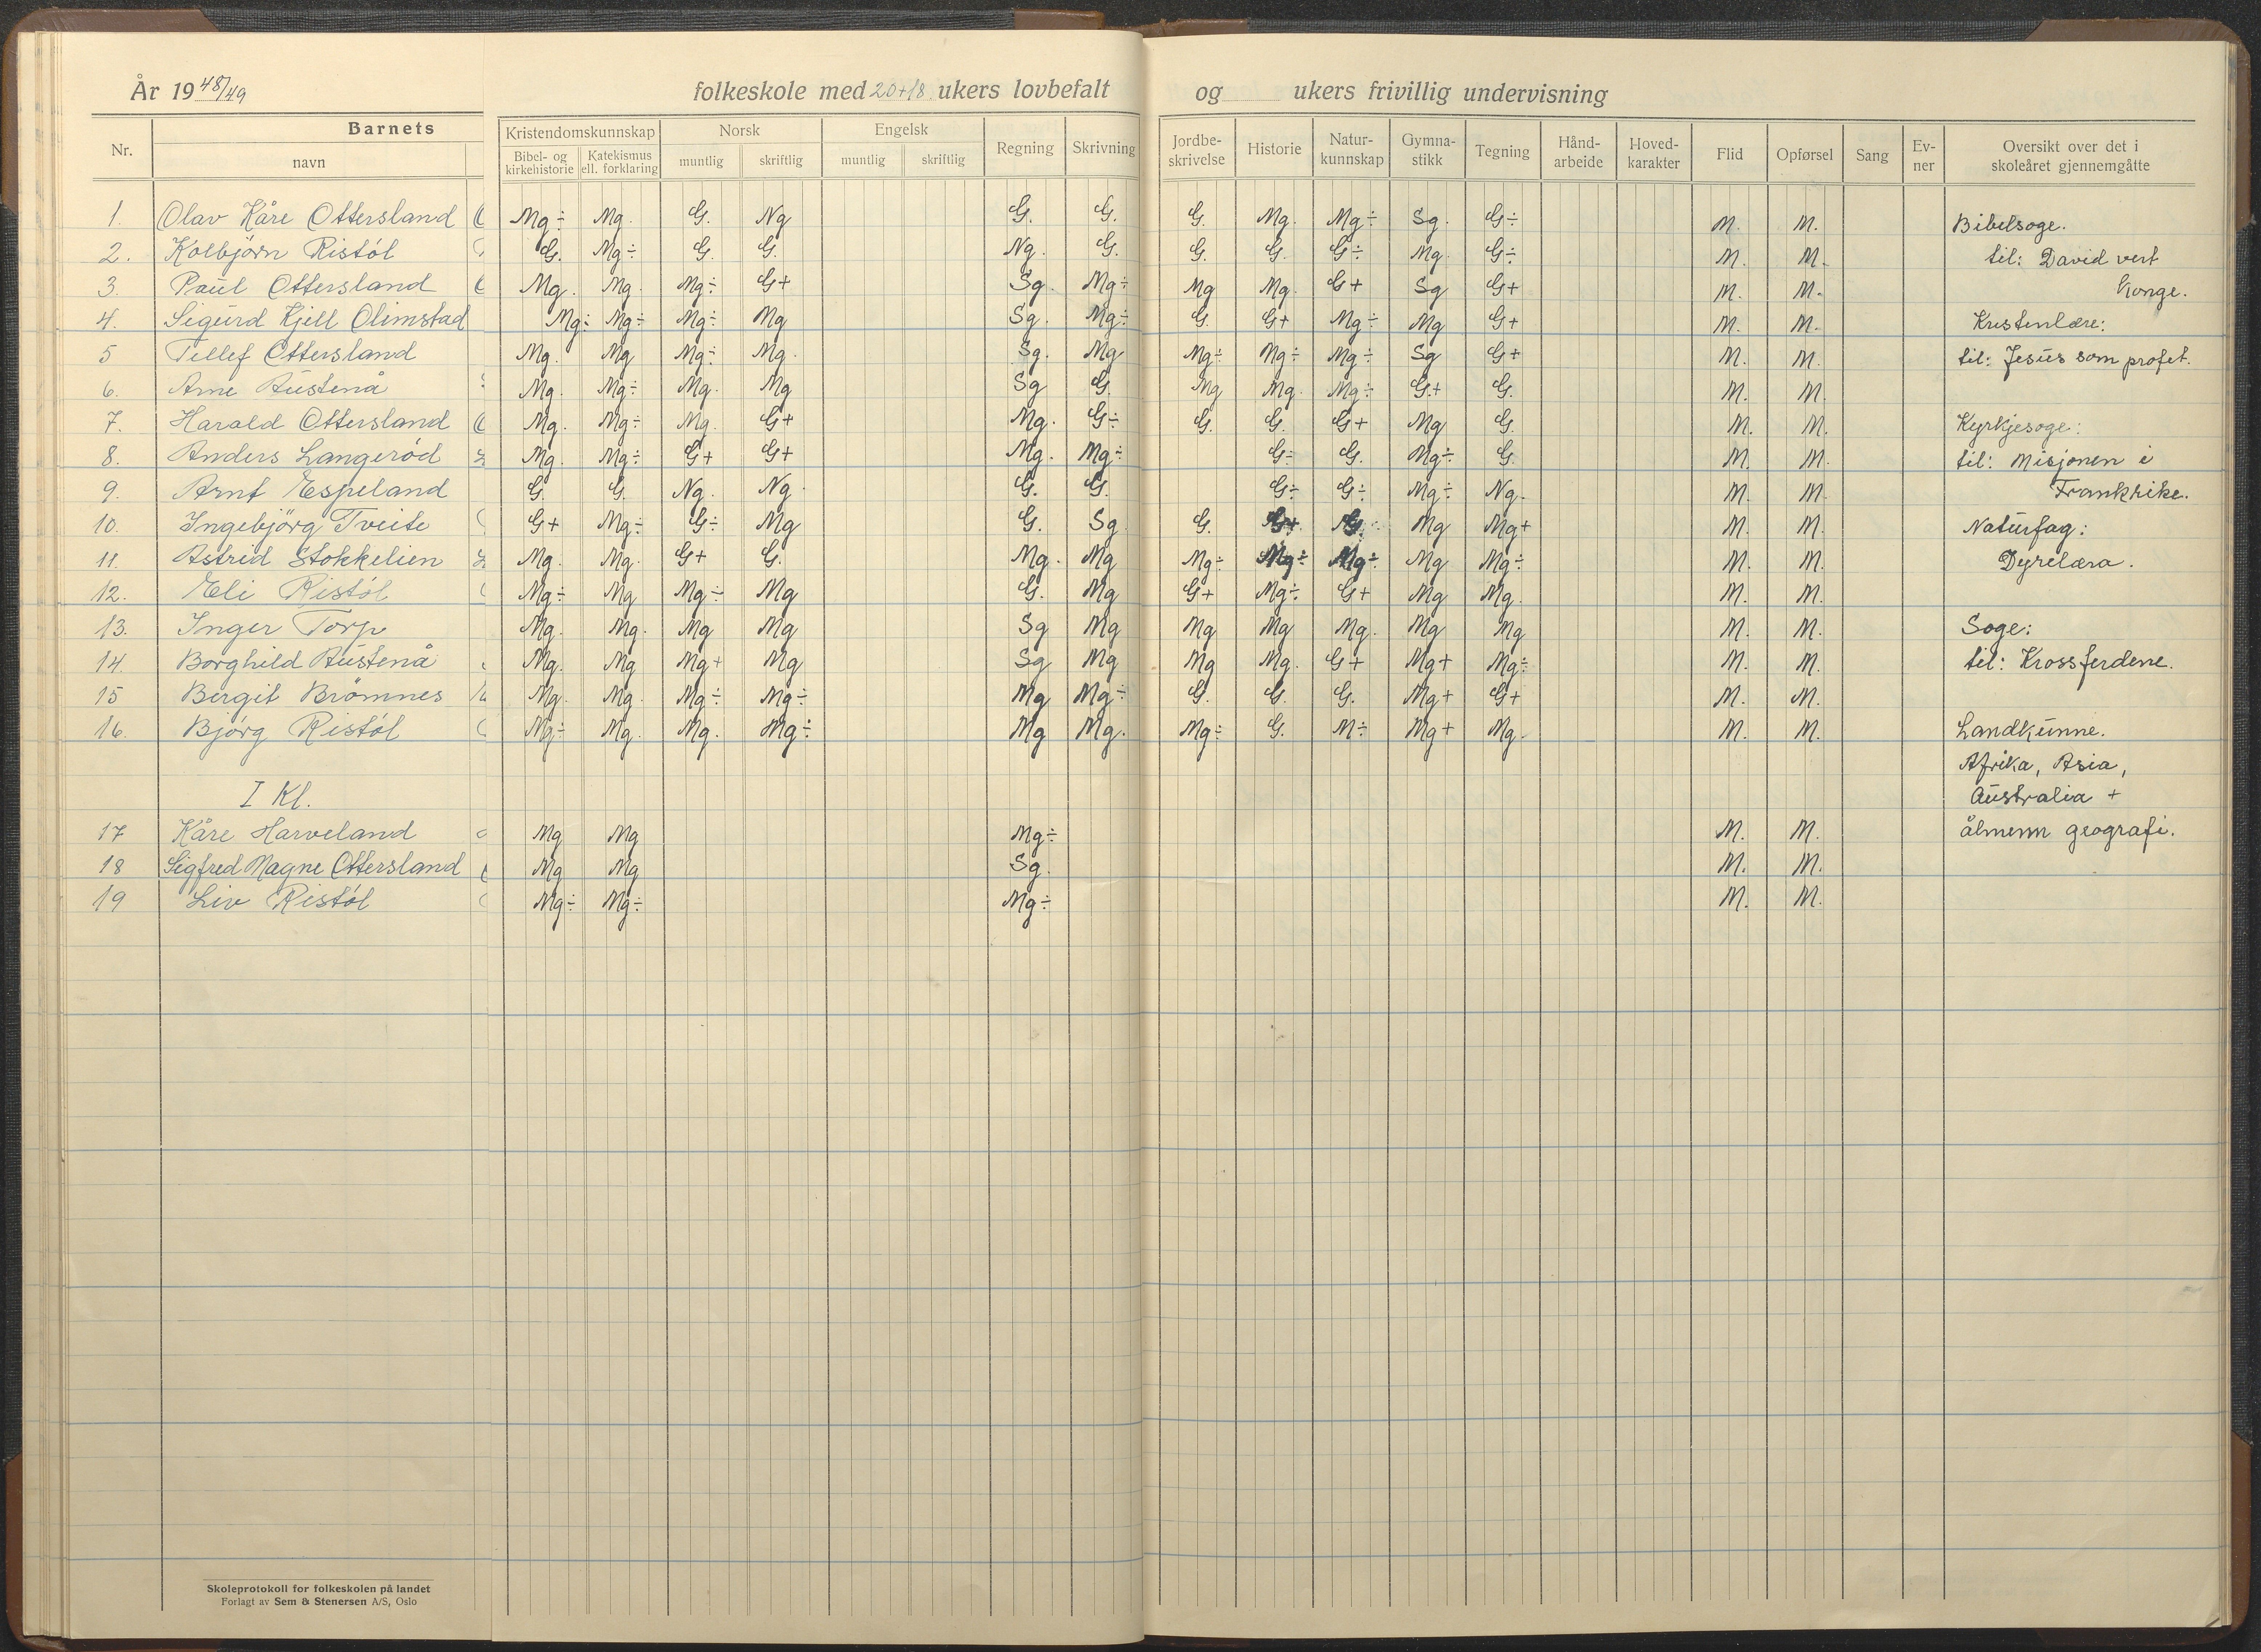 År 19 48/49 folkeskole med 20+18 ukers lovbefalt og ukers frivillig undervisning
Nr. Barnets navn Kristendomskunnskap Bibel- og kirkehistorie Katekismus ell. forklaring Norsk muntlig skriftlig Engelsk muntlig skriftlig Regning Skrivning Jordbe-skrivelse Historie Natur-kunnskap Gymna-stikk Tegning Hånd-arbeide Hoved-karakter Flid Opførsel Sang Ev-ner Oversikt over det i skoleåret gjennemgåtte
1. Olav Kåre Ottersland Mg÷ Mg. G. Ng G. G. G. Mg. Mg÷ Sg. G÷ M. M. Bibelsoge.
2. Kolbjörn Ristöl G. Mg÷ G. G. Ng. G. G. G. G÷ Mg. G÷ M. M. til: David vert
3. Paul Ottersland Mg. Mg. Mg÷ G+ Sg. Mg÷ Mg Mg. G+ Sg G+ M. M. konge.
4. Sigurd Kjell Olimstad Mg÷ Mg÷ Mg÷ Mg Sg. Mg÷ G. G+ Mg÷ Mg G+ M. M. Kristenlære:
5 Tellef Ottersland Mg. Mg Mg÷ Mg. Sg. Mg Mg÷ Mg÷ Mg÷ Sg G+ M. M. til: Jesus som profet.
6. Arne Austenå Mg. Mg÷ Mg. Mg Sg G. Mg Mg. Mg÷ G+ G. M. M.
7. Harald Ottersland Mg. Mg÷ Mg. G+ Mg. G÷ G. G. G+ Mg G. M. M. Kyrkjesoge:
8. Anders Langeröd Mg. Mg÷ G+ G+ Mg. Mg÷ G÷ G. Mg÷ G. M. M. til: Misjonen i
9. Arnt Espeland G. G. Ng. Ng. G. G. G÷ G÷ Mg÷ Ng. M. M. Frankrike.
10. Ingebjörg Tveite G+ Mg÷ G÷ Mg G. Sg. G. G+ G. Mg Mg+ M. M. Naturfag:
11. Astrid Stokkelien Mg. Mg. G+ G. Mg. Mg Mg÷ Mg÷ Mg÷ Mg Mg÷ M. M. Dyrelæra.
12. Eli Ristöl Mg÷ Mg Mg÷ Mg G. Mg G+ Mg÷ G+ Mg Mg. M. M.
13. Inger Torp Mg. Mg. Mg Mg Sg Mg Mg Mg Mg. Mg Mg M. M. Soge:
14. Borghild Austenå Mg. Mg Mg+ Mg Sg Mg Mg Mg. G+ Mg+ Mg÷ M. M. til: Krossferdene.
15 Bergit Brömnes Mg. Mg. Mg÷ Mg÷ Mg Mg÷ G. G. G. Mg+ G+ M. M.
16. Björg Ristöl Mg÷ Mg. Mg. Mg÷ Mg Mg. Mg÷ G. M÷ Mg+ Mg. M. M. Landkunne.
Afrika, Asia,
I Kl. Australia +
17 Kåre Harveland Mg Mg Mg÷ M. M. ålmenn geografi.
18 Sigfred Magne Ottersland Mg Mg Sg. M. M.
19 Liv Ristöl Mg÷ Mg÷ Mg÷ M. M.
Skoleprotokoll for folkeskolen på landet
Forlagt av Sem & Stenersen A/S, Oslo